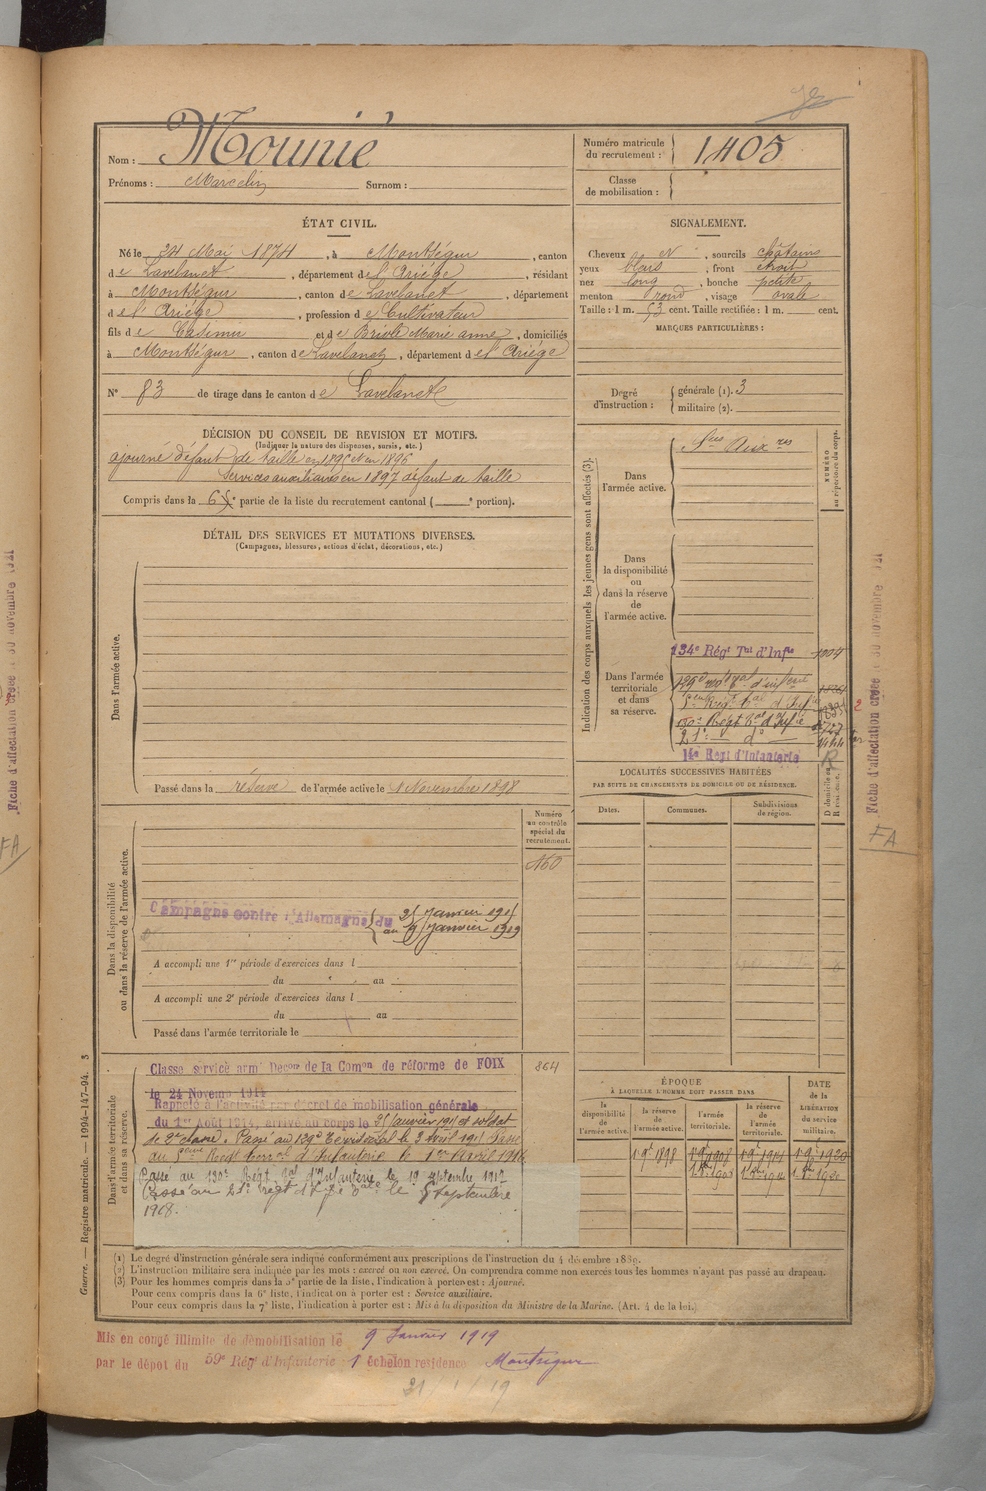 Nom : Mounié
Prénoms : Marcelin Surnom :
Numéro matricule du recrutement : 1405
Classe de mobilisation :
ÉTAT CIVIL.
Né le 24 Mai 1874, à Montségur, canton
de Lavelanet, département de l'Ariége, résidant
à Montségur, canton de Lavelanet, département
de l'Ariége, profession de Cultivateur
fils de Casimir et de Marie anne, domiciliés
à Montségur, canton de Lavelanet, département de l'Ariége
N° 83 de tirage dans le canton de Lavelanet
SIGNALEMENT.
Cheveux et, sourcils châtains
yeux bleus, front étroit
nez long, bouche petite
menton rond, visage ovale
Taille : 1 m. 53 cent. Taille rectifiée : 1 m. cent.
MARQUES PARTICULIÈRES :
Degré d'instruction : générale (1). 3
militaire (2).
DÉCISION DU CONSEIL DE REVISION ET MOTIFS.
(Indiquer la nature des dispenses, sursis, etc.)
ajourné défaut de taille en 1895 et en 1896
Services auxiliaires en 1897 défaut de taille
Compris dans la 6e partie de la liste du recrutement cantonal ( e portion).
DÉTAIL DES SERVICES ET MUTATIONS DIVERSES.
(Campagnes, blessures, actions d'éclat, décorations, etc.)
Dans l'armée active.
Passé dans la réserve de l'armée active le Novembre 1898
Numéro au contrôle spécial du recrutement.
Dans la disponibilité ou dans la réserve de l'armée active.
Campagne contre l'Allemagne du 25 Janvier 1915
au 9 Janvier 1919
A accompli une 1re période d'exercices dans l
du au
A accompli une 2e période d'exercices dans l
du au
Passé dans l'armée territoriale le
Dans l'armée territoriale et dans sa réserve.
Classe service armé Décon de la Comon de réforme de FOIX
864
le 24 Novemb 1914
Rappelé à l'activité par décret de mobilisation générale
du 1er Août 1914, arrivé au corps le 25 Janvier 1915 et soldat
de 2e classe. Passé au 129e Territorial le 3 Avril 1915 Passé
au Regt d'Infanterie le 1er Avril 1916
Passé au 130e Régt d'Infanterie le 19 septembre 1917
Passé au 21e le 5 Septembre
1918.
Indication des corps auxquels les jeunes gens sont affectés (3).
NUMÉRO au répertoire du corps.
Dans l'armée active.
Sces Auxres
Dans la disponibilité ou dans la réserve de l'armée active.
Dans l'armée territoriale et dans sa réserve.
134e Régt Tal d'Infie
129e
130e Régt d'Infie
21e do
14e Regt d'Infanterie
LOCALITÉS SUCCESSIVES HABITÉES
PAR SUITE DE CHANGEMENTS DE DOMICILE OU DE RÉSIDENCE.
D domicile ou R résidence.
Dates. Communes. Subdivisions de région.
ÉPOQUE
À LAQUELLE L'HOMME DOIT PASSER DANS
la disponibilité de l'armée active.
la réserve de l'armée active.
l'armée territoriale.
la réserve de l'armée territoriale.
DATE de la LIBÉRATION du service militaire.
(1) Le degré d'instruction générale sera indiqué conformément aux prescriptions de l'instruction du 4 décembre 1889.
(2) L'instruction militaire sera indiquée par les mots : exercé ou non exercé. On comprendra comme non exercés tous les hommes n'ayant pas passé au drapeau.
(3) Pour les hommes compris dans la 5e partie de la liste, l'indication à porter est : Ajourné.
Pour ceux compris dans la 6e liste, l'indication à porter est : Service auxiliaire.
Pour ceux compris dans la 7e liste, l'indication à porter est : Mis à la disposition du Ministre de la Marine. (Art. 4 de la loi.)
Guerre. — Registre matricule. — 1994-147-94. 3
Mis en congé illimité de démobilisation le 9 Janvier 1919
par le dépôt du 59e Régt d'Infanterie 1 échelon residence Montségur
21/1/19
Fiche d'affectation créée
FA
FA